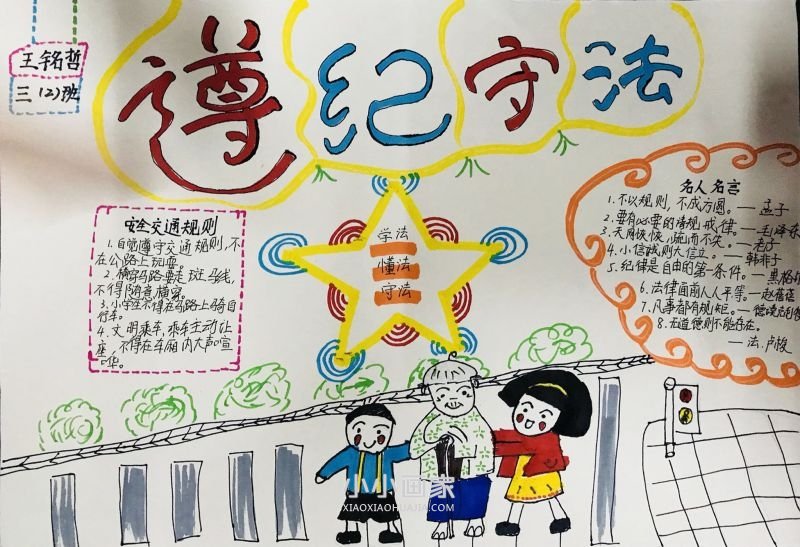 遵纪守法
王铭哲
三(2)班
安全交通规则
1.自觉遵守交通规则,不
在公路上玩耍。
2.横穿马路要走斑马线,
不得随意横穿。
3.小学生不得在马路上骑自
行车。
4.文明乘车,乘车主动让
座,不得在车厢内大声喧
哗。
学法
懂法
守法
名人名言
1.不以规则,不成方圆。——孟子
2.要有必要的清规戒律。——毛泽东
3.天网恢恢,疏而不失。——老子
4.小信诚则大信立。——韩非子
5.纪律是自由的第一条件。——黑格
6.法律面前人人平等。——赵蓓蓓
7.凡事都有规矩。——德
8.无道德则不能存在。
——法.卢梭
小小画家
XIAOXIAOHUAJIA.COM